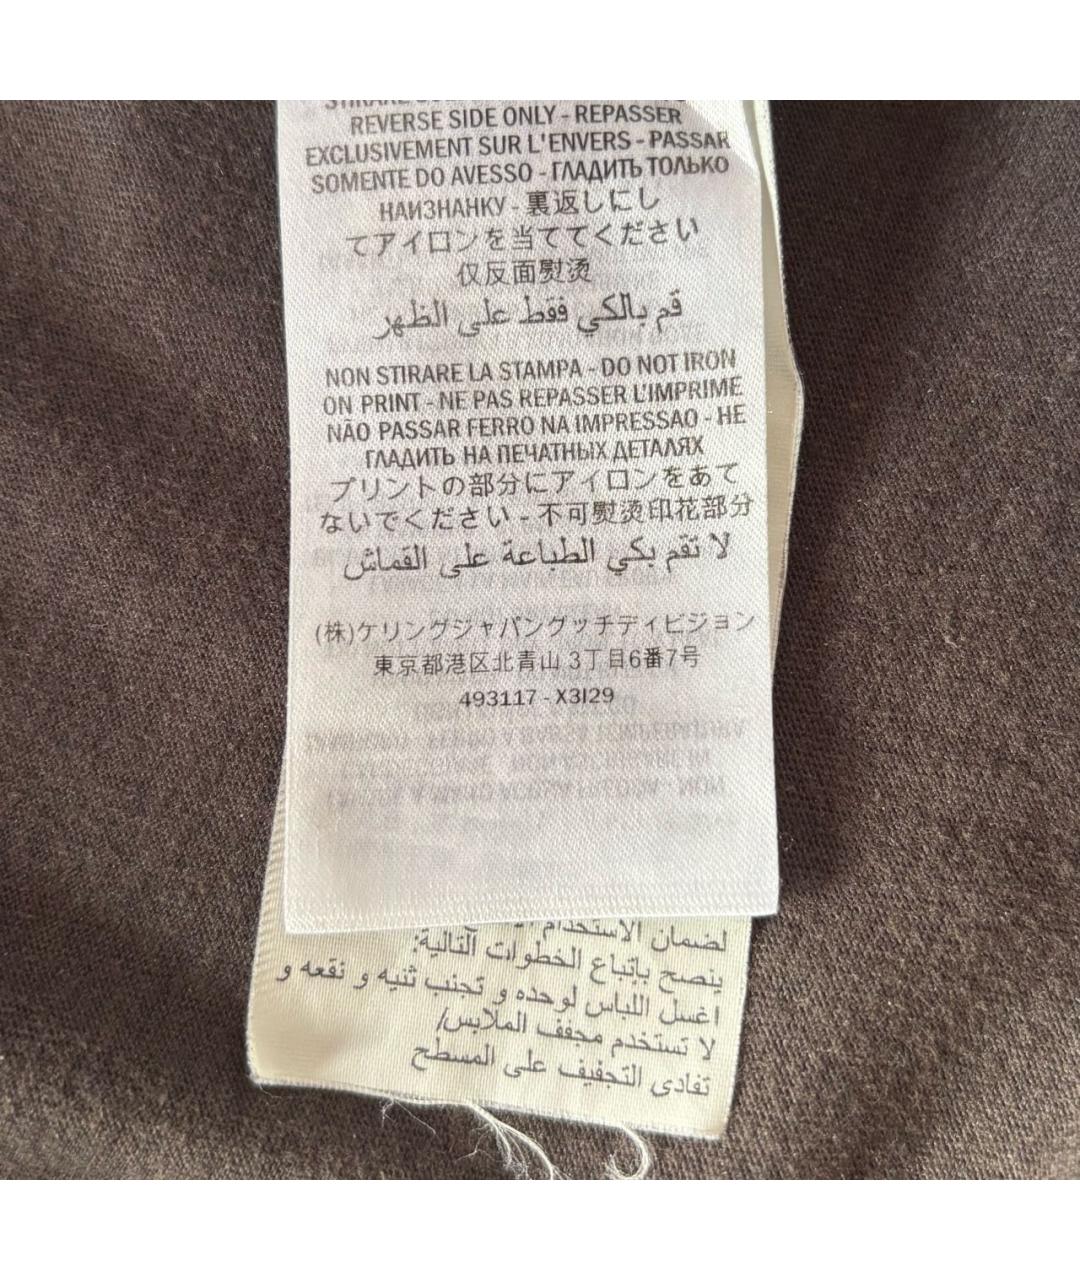 REVERSE SIDE ONLY - REPASSER
EXCLUSIVEMENT SUR L'ENVERS - PASSAR
SOMENTE DO AVESSO - ГЛАДИТЬ ТОЛЬКО
НАИЗНАНКУ - 裏返しにし
てアイロンを当ててください
仅反面熨烫
قم بالكي فقط على الظهر
NON STIRARE LA STAMPA - DO NOT IRON
ON PRINT - NE PAS REPASSER L'IMPRIME
NÃO PASSAR FERRO NA IMPRESSAO - НЕ
ГЛАДИТЬ НА ПЕЧАТНЫХ ДЕТАЛЯХ
プリントの部分にアイロンをあて
ないでください - 不可熨烫印花部分
لا تقم بكي الطباعة على القماش
(株)ケリングジャパングッチディビジョン
東京都港区北青山 3丁目6番7号
493117 - X3I29
لضمان الاستخدام
ينصح بإتباع الخطوات التالية:
اغسل اللباس لوحده و تجنب ثنيه و نقعه و
لا تستخدم مجفف الملابس/
تفادى التجفيف على المسطح